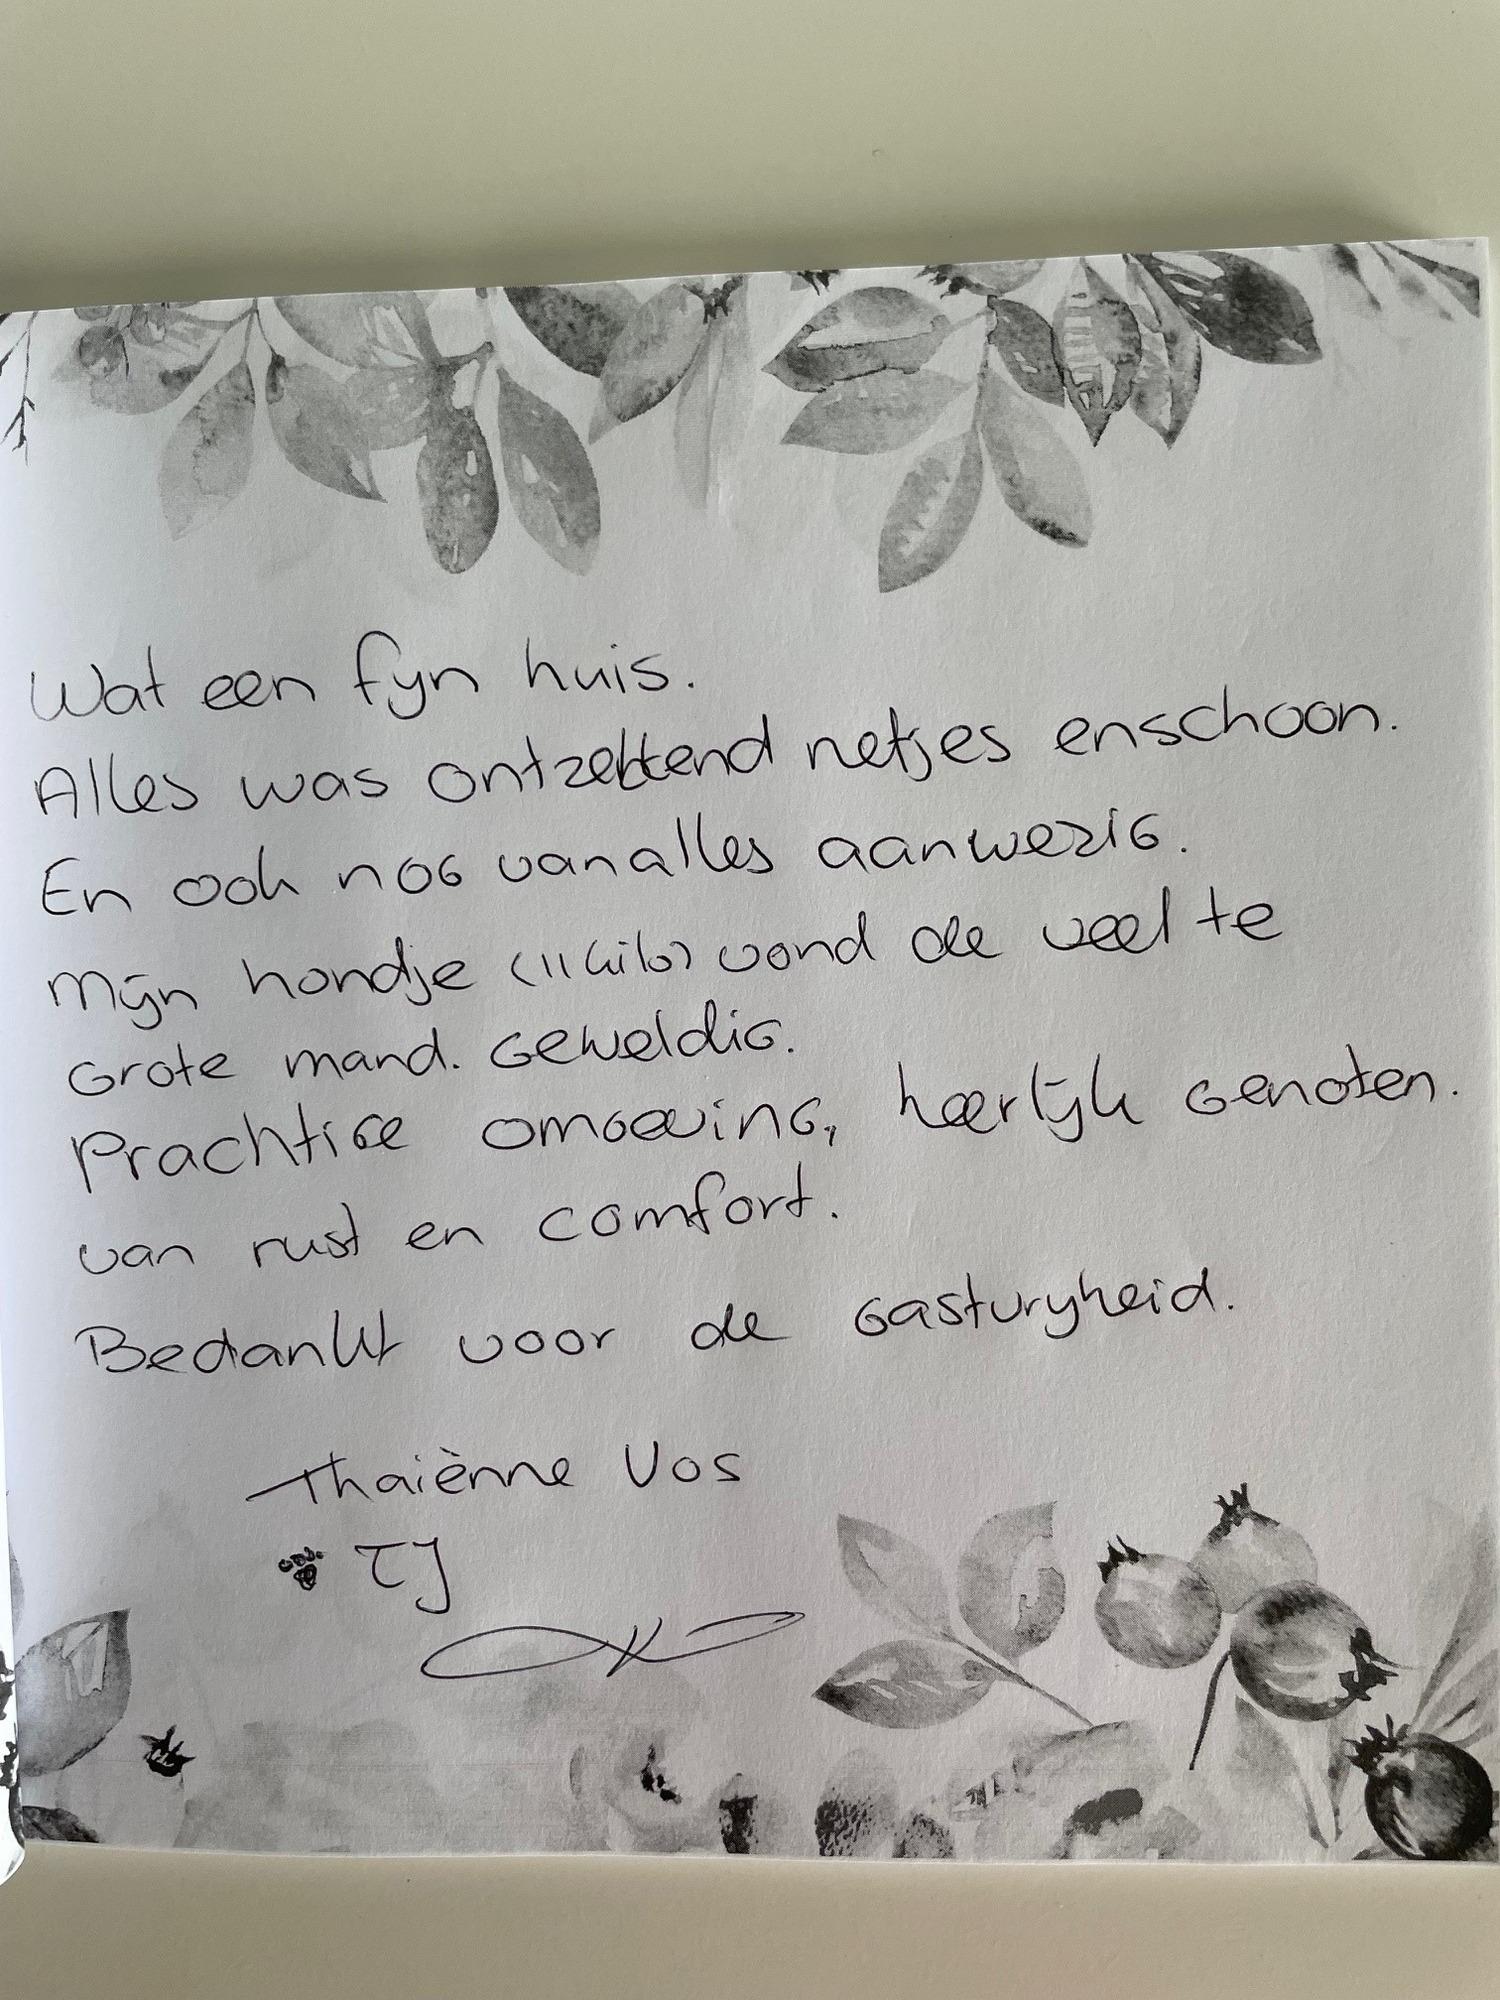 Wat een fyn huis.
Alles was ontzettend netjes enschoon.
En ook nog vanalles aanwezig.
Mijn hondje (11 kilo) vond de veel te
grote mand. geweldig.
Prachtige omgeving, heerlijk genoten.
van rust en comfort.
Bedankt voor de gastvryheid.
Thaiènne Vos
TJ